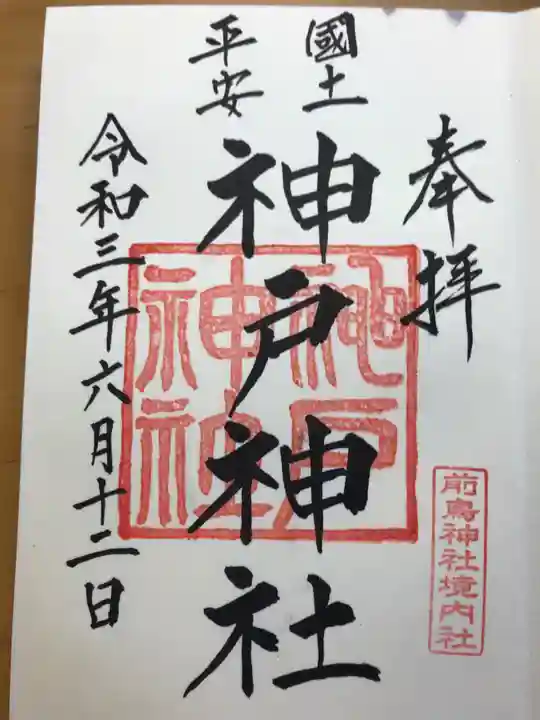 奉拝
國土
平安
神戸神社
神戸
神社
前鳥神社境内社
令和三年六月十二日